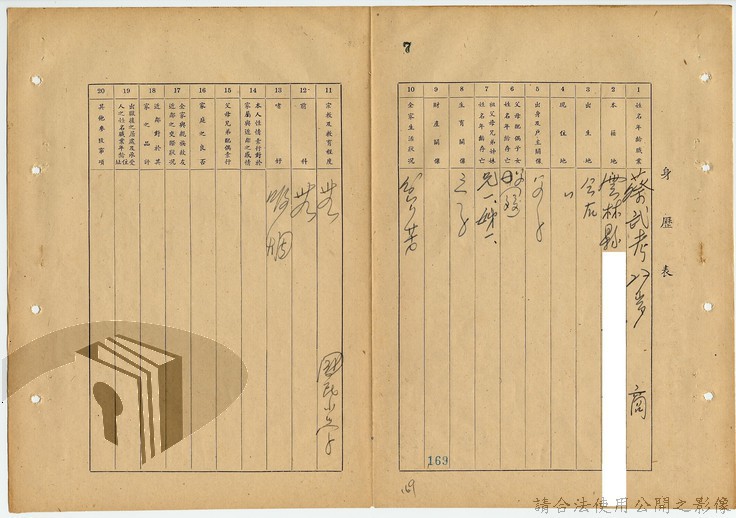 7
身歷表
1 姓名年齡職業 蔡武考 商
2 本籍地 雲林縣
3 出生地 仝右
4 現住地 〃
5 出身及戶主關係
6 父母配偶子女姓名年齡存亡
7 祖父母兄弟姊妹姓名年齡存亡 兄一、姊一
8 生育關係 三子
9 財產關係
10 全家生活狀況
11 宗教及教育程度 無 國民小學
12 前科 無
13 嗜好 吸烟
14 本人性情素行對於家屬與近鄰之感情
15 父母兄弟配偶素行
16 家庭之良否
17 全家與親族故友近鄰之交際狀況
18 近鄰對於其家之品評
19 出獄後之居處及承受人之姓名職業年齡住址
20 其他參考事項
169
請合法使用公開之影像